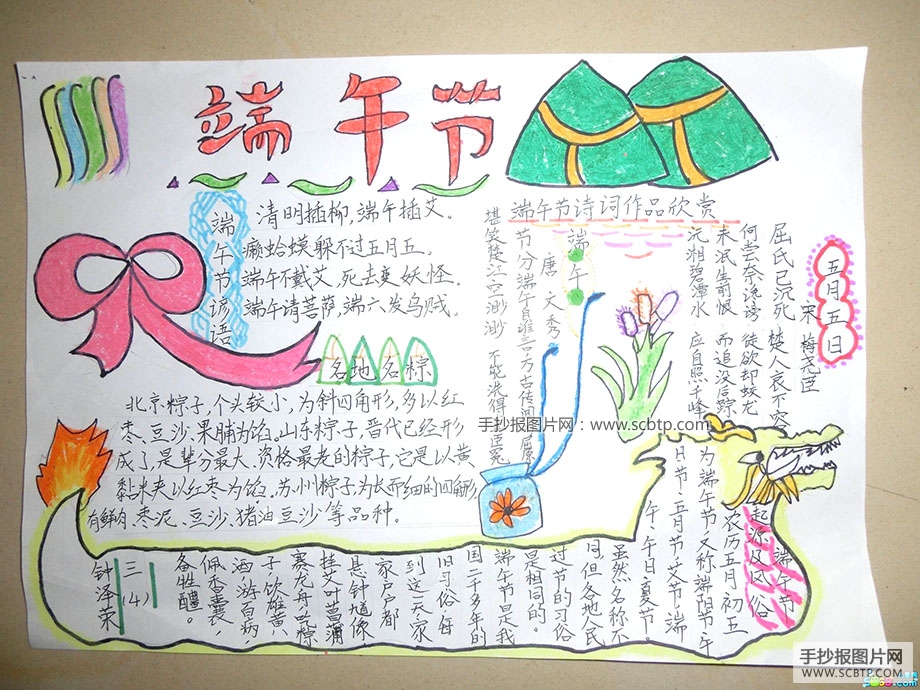 端午节
端午节谚语
清明插柳,端午插艾。
癞蛤蟆躲不过五月五。
端午不戴艾,死去变妖怪。
端午请菩萨,端六发乌贼。
端午节诗词作品欣赏
端午
唐 文秀
节分端午自谁言万古传闻
屈原
堪笑楚江空渺渺 不能洗得
臣冤
五月五日
宋 梅尧臣
屈氏已沉死 楚人哀不容
何尝奈谗谤 徒欲却蛟龙
未泯生前恨 而追没后踪
沅湘碧潭水 应自照千峰
各地名粽
北京粽子,个头较小,为斜四角形,多以红
枣、豆沙、果脯为馅。山东粽子,晋代已经形
成了,是辈分最大、资格最老的粽子,它是以黄
黏米夹以红枣为馅,苏州粽子为长而细的四角形
有鲜肉、枣泥、豆沙、猪油豆沙等品种。
手抄报图片网:www.scbtp.com
端午节
起源及风俗
农历五月初五
为端午节,又称端阳节、午
日节、五月节、艾节、端
午、午日、夏节。
虽然名称不
同,但各地人民
过节的习俗
是相同的。
端午节是我
国二千多年的
旧习俗,每
到这一天,家
家户户都
悬钟馗像
挂艾叶菖蒲
赛龙舟,吃粽
子,饮雄黄,
游百病,
佩香囊,
备牲醴。
三(4)
钟泽荣
手抄报图片网
WWW.SCBTP.COM